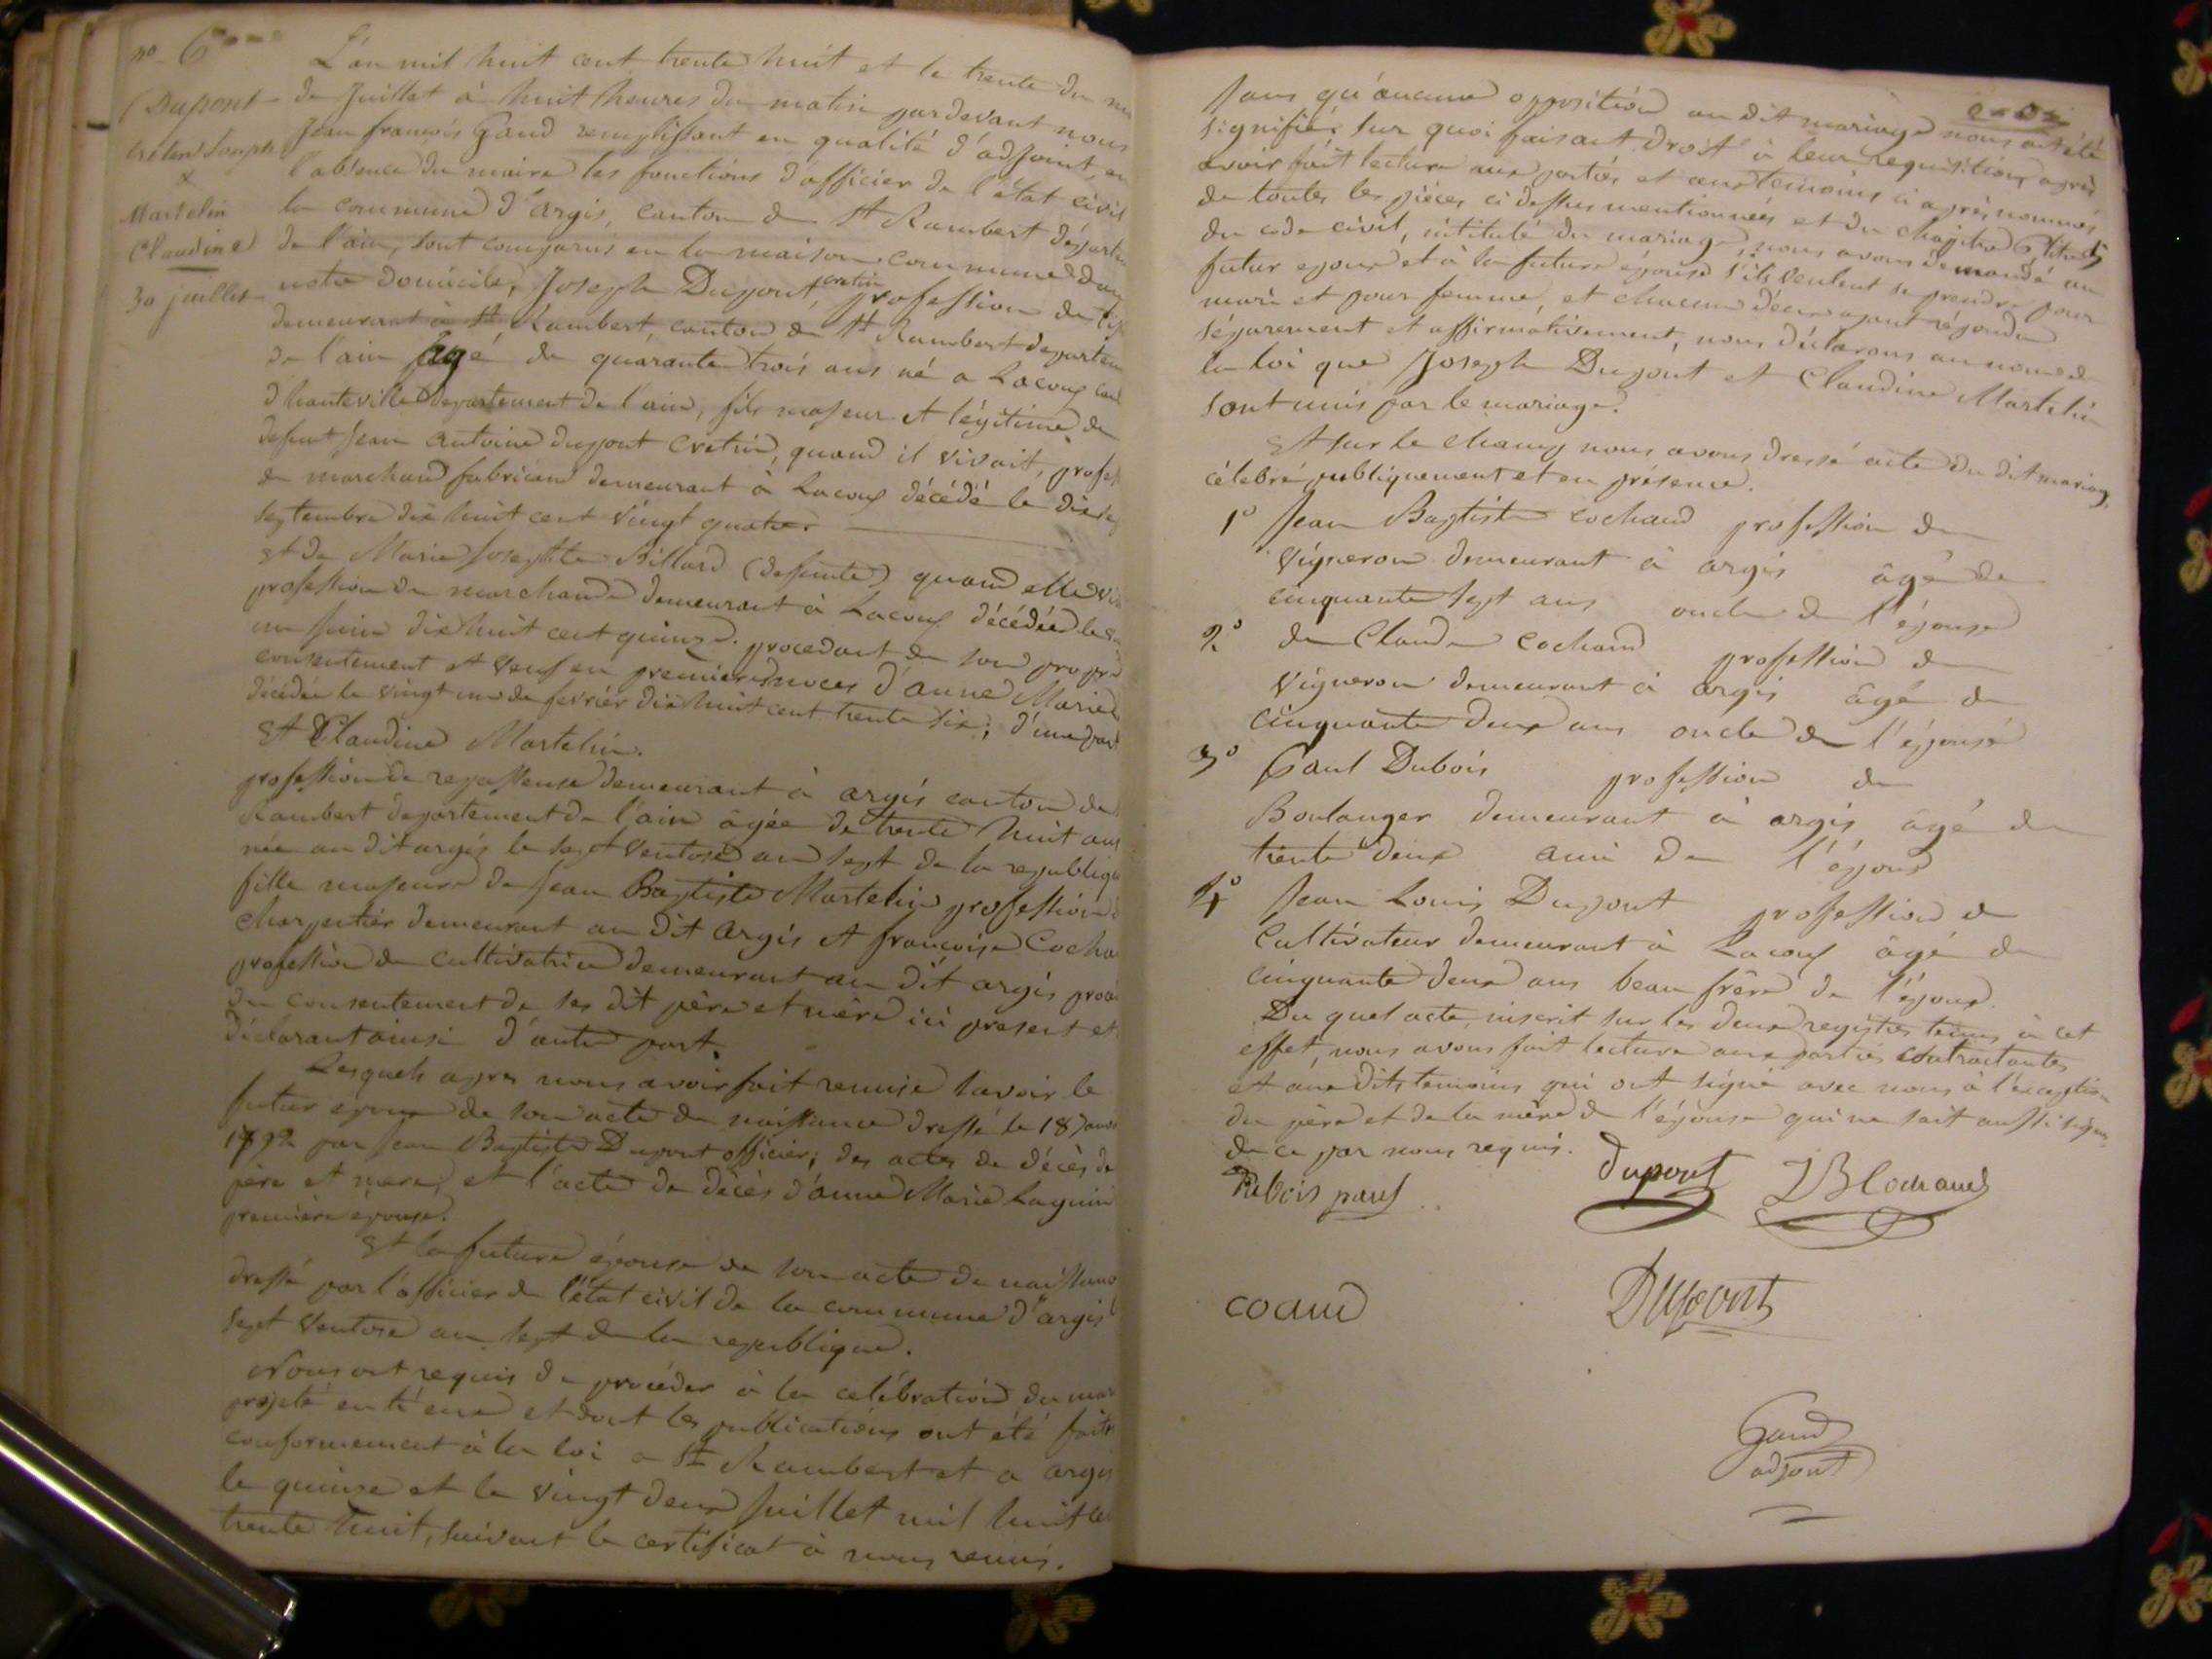 no 6
Dupont
cretin Joseph
x
Martelin
Claudine
30 juillet
L'an mil huit cent trente huit et le trente du
de Juillet à huit heures du matin pardevant nous
Jean françois Gaud remplissant en qualité d'adjoint, en
l'absence du maire les fonctions d'officier de l'état civil
la commune d'argis, canton de St Rambert départe
de l'ain, sont comparus en la maison commune dans
notre domicile, Joseph Dupont cretin profession de
demeurant à St Rambert, canton de St Rambert departem
de l'ain agé de quarante trois ans né a Lacoux can
d'hauteville departement de l'ain, fils majeur et légitime de
defunt Jean antoine dupont Cretin, quand il vivait, profes
de marchand fabrican demeurant à Lacoux décédé le dix
septembre dix huit cent vingt quatre.
et de Marie Josephte Billard (defunte) quand elle vi
profession de marchande demeurant à Lacoux décédée le
un juin dix huit cent quinze. procedant de son propre
consentement et veuf en premiere noces d'anne Marie
décédée le vingt un de fevrier dix huit cent trente six; d'une part
Et Claudine Martelin.
profession de repasseuse demeurant à argis canton de
Rambert departement de l'ain âgée de trente huit ans
née au dit argis le sept ventose an sept de la republique
fille majeure de Jean Baptiste Martelin profession d
charpentier demeurant au dit argis et françoise Cocha
profession de cultivatrice demeurant au dit argis procé
du consentement de ses dit père et mère ici present et
déclarant ainsi d'autre part.
Lesquels apres nous avoir fait remise savoir le
futur epoux de son acte de naissance dressé le 18
1792 par Jean Baptiste Dupont officier; des actes de décès de
père et mere, et l'acte de décès d'anne Marie Laguin
première épouse.
Et la future épouse de son acte de naissance
dressé par l'officier de l'état civil de la commune d'argis
sept ventose an sept de la republique.
Nous ont requis de procéder à la célébration du mar
projeté entr'eux et dont les publications ont été faite
conformement à la loi a St Rambert et a argis
le quinze et le vingt deux Juillet mil huit ce
trente huit, suivant le certificat à nous remis.
sans qu'aucune opposition au dit mariage nous ait été
signifié, sur quoi faisant droit à leur requisition, après
avoir fait lecture aux parties et aux temoins ci après nommés,
de toutes les pièces ci dessus mentionnées et du chapitre 6, titre 5
du code civil, intitulé du mariage, nous avons demandé au
futur epoux et à la future épouse s'ils veulent se prendre pour
mari et pour femme, et chacun d'eux ayant répondu
séparement et affirmativement, nous déclarons au nom de
la loi que Joseph Dupont et Claudine Martelin
sont unis par le mariage.
Et sur le champ nous avons dressé acte du dit mariage
célebré publiquement et en présence.
1° Jean Baptiste cochand profession de
vigneron demeurant à argis âgé de
cinquante sept ans oncle de l'épouse
2° de Claude cochand profession de
vigneron demeurant à argis âgé de
cinquante deux ans oncle de l'épouse
3° Paul Dubois profession de
Boulanger demeurant à argis âgé de
trente deux ami de l'époux
4° Jean Louis Dupont profession de
Cultivateur demeurant à Lacoux âgé de
cinquante deux ans beau frère de l'époux.
Du quel acte, inscrit sur les deux registres tenus à cet
effet, nous avons fait lecture aux parties contractantes
et aux dits temoins qui ont signé avec nous à l'exception
du père et de la mère de l'épouse qui ne sait aussi signer
de ce par nous requis.
Dubois paul
dupont
JB Cochand
coaud
Dupont
Gaud
adjoint